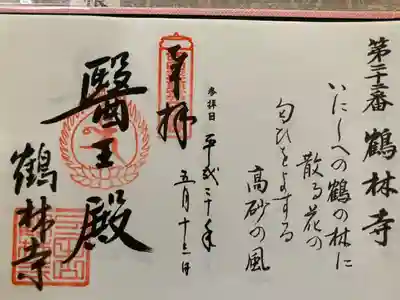 第二十二番 鶴林寺
いにしへの鶴の林に
散る花の
匂ひをよする
高砂の風
奉拝
参拝日 平成三十年
五月十三日
醫王殿
鶴林寺